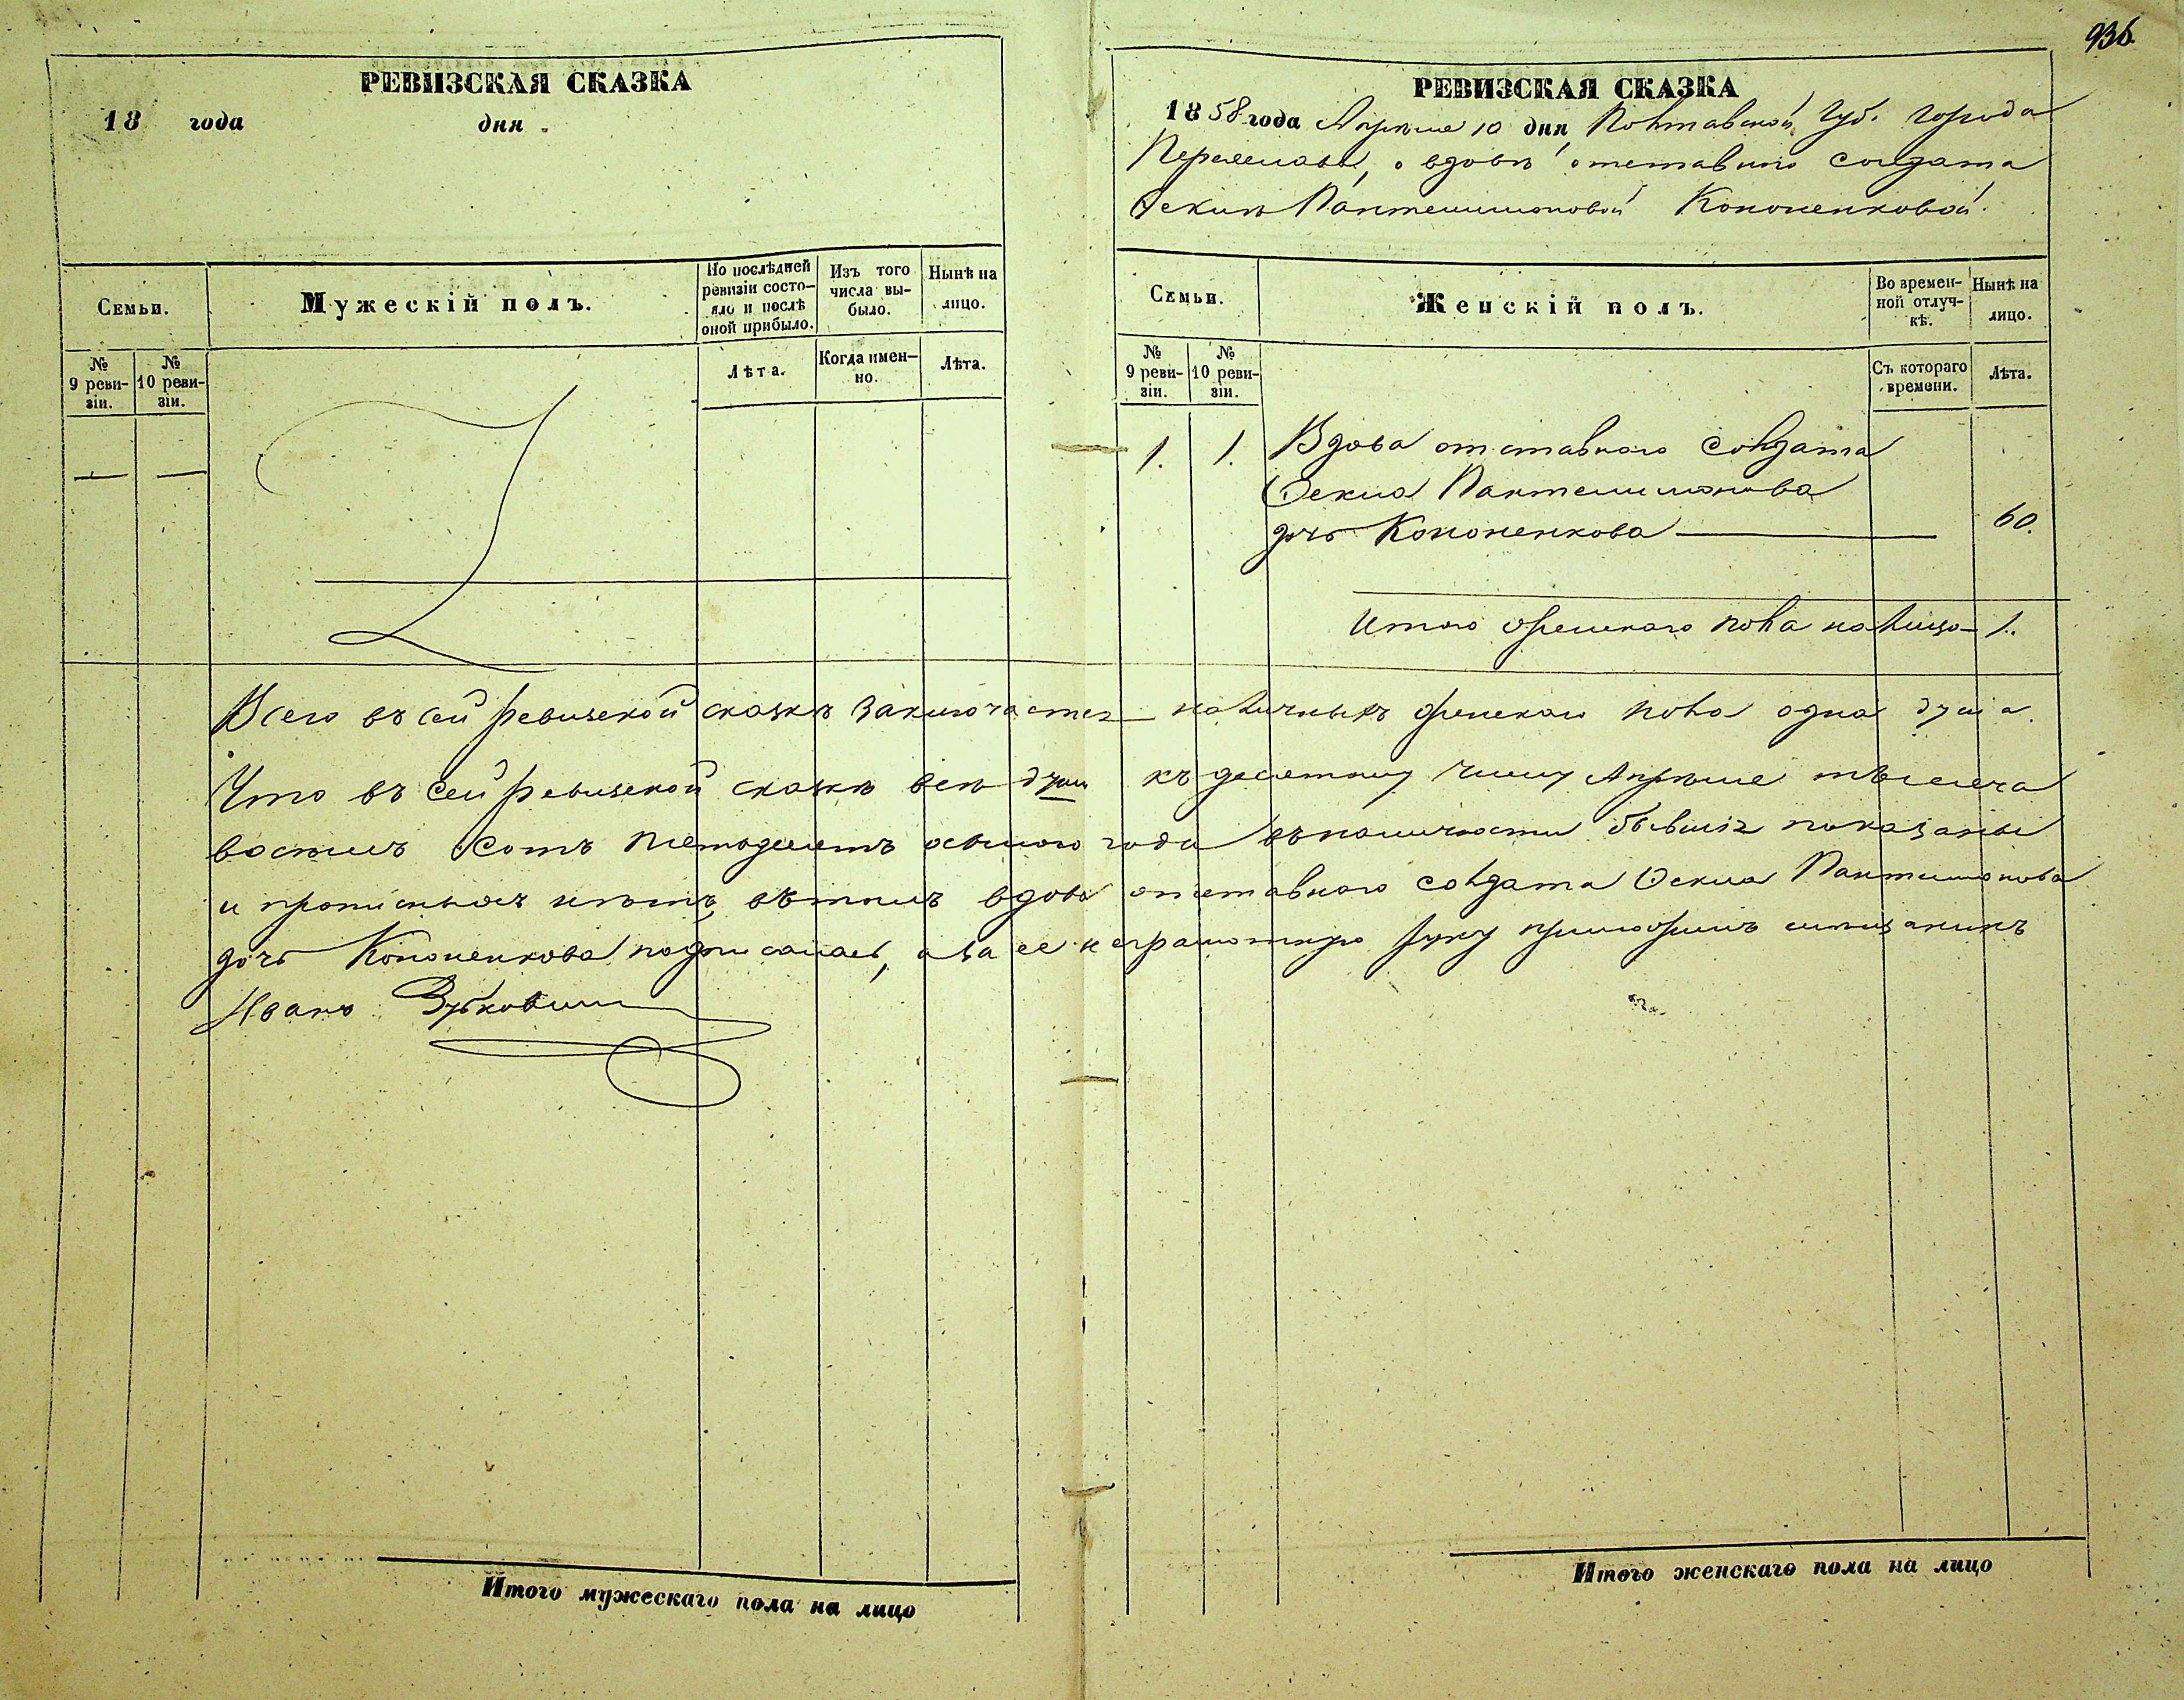 936.
РЕВИЗСКАЯ СКАЗКА
18 года дня
Семьи.
Мужескій полъ.
По послѣдней ревизіи состо-
яло и послѣ оной прибыло.
Изъ того числа вы-
было.
Нынѣ на лицо.
№ 9 реви-
зіи.
№ 10 реви-
зіи.
Лѣта.
Когда имен-
но.
Лѣта.
РЕВИЗСКАЯ СКАЗКА
1858 года Апрѣля 10 дня Полтавской Губ. Города
Переяслава, о вдовѣ отставного солдата
Ѳеклѣ Пантелимоновой Кононенковой.
Семьи.
Женскій полъ.
Во времен-
ной отлуч-
кѣ.
Нынѣ на лицо.
№ 9 реви-
зіи.
№ 10 реви-
зіи.
Съ котораго времени.
Лѣта.
1. 1. Вдова отставного солдата
Ѳекла Пантелимонова
дочь Кононенкова 60.
Итого женскаго пола на лицо 1.
Всего въ сей ревизской сказкѣ заключается наличныхъ женскаго пола одна душа.
Что въ сей ревизской сказкѣ всѣ души къ десятому числу Апрѣля мѣсяца
восемь сотъ пятьдесятъ осьмого года въ наличности бывшія показаны
и прописныхъ нѣтъ, въ томъ вдова отставного солдата Ѳекла Пантелимонова
дочь Кононенкова подписалась, а за ее неграмотную руку приложилъ
Иванъ
Итого мужескаго пола на лицо
Итого женскаго пола на лицо